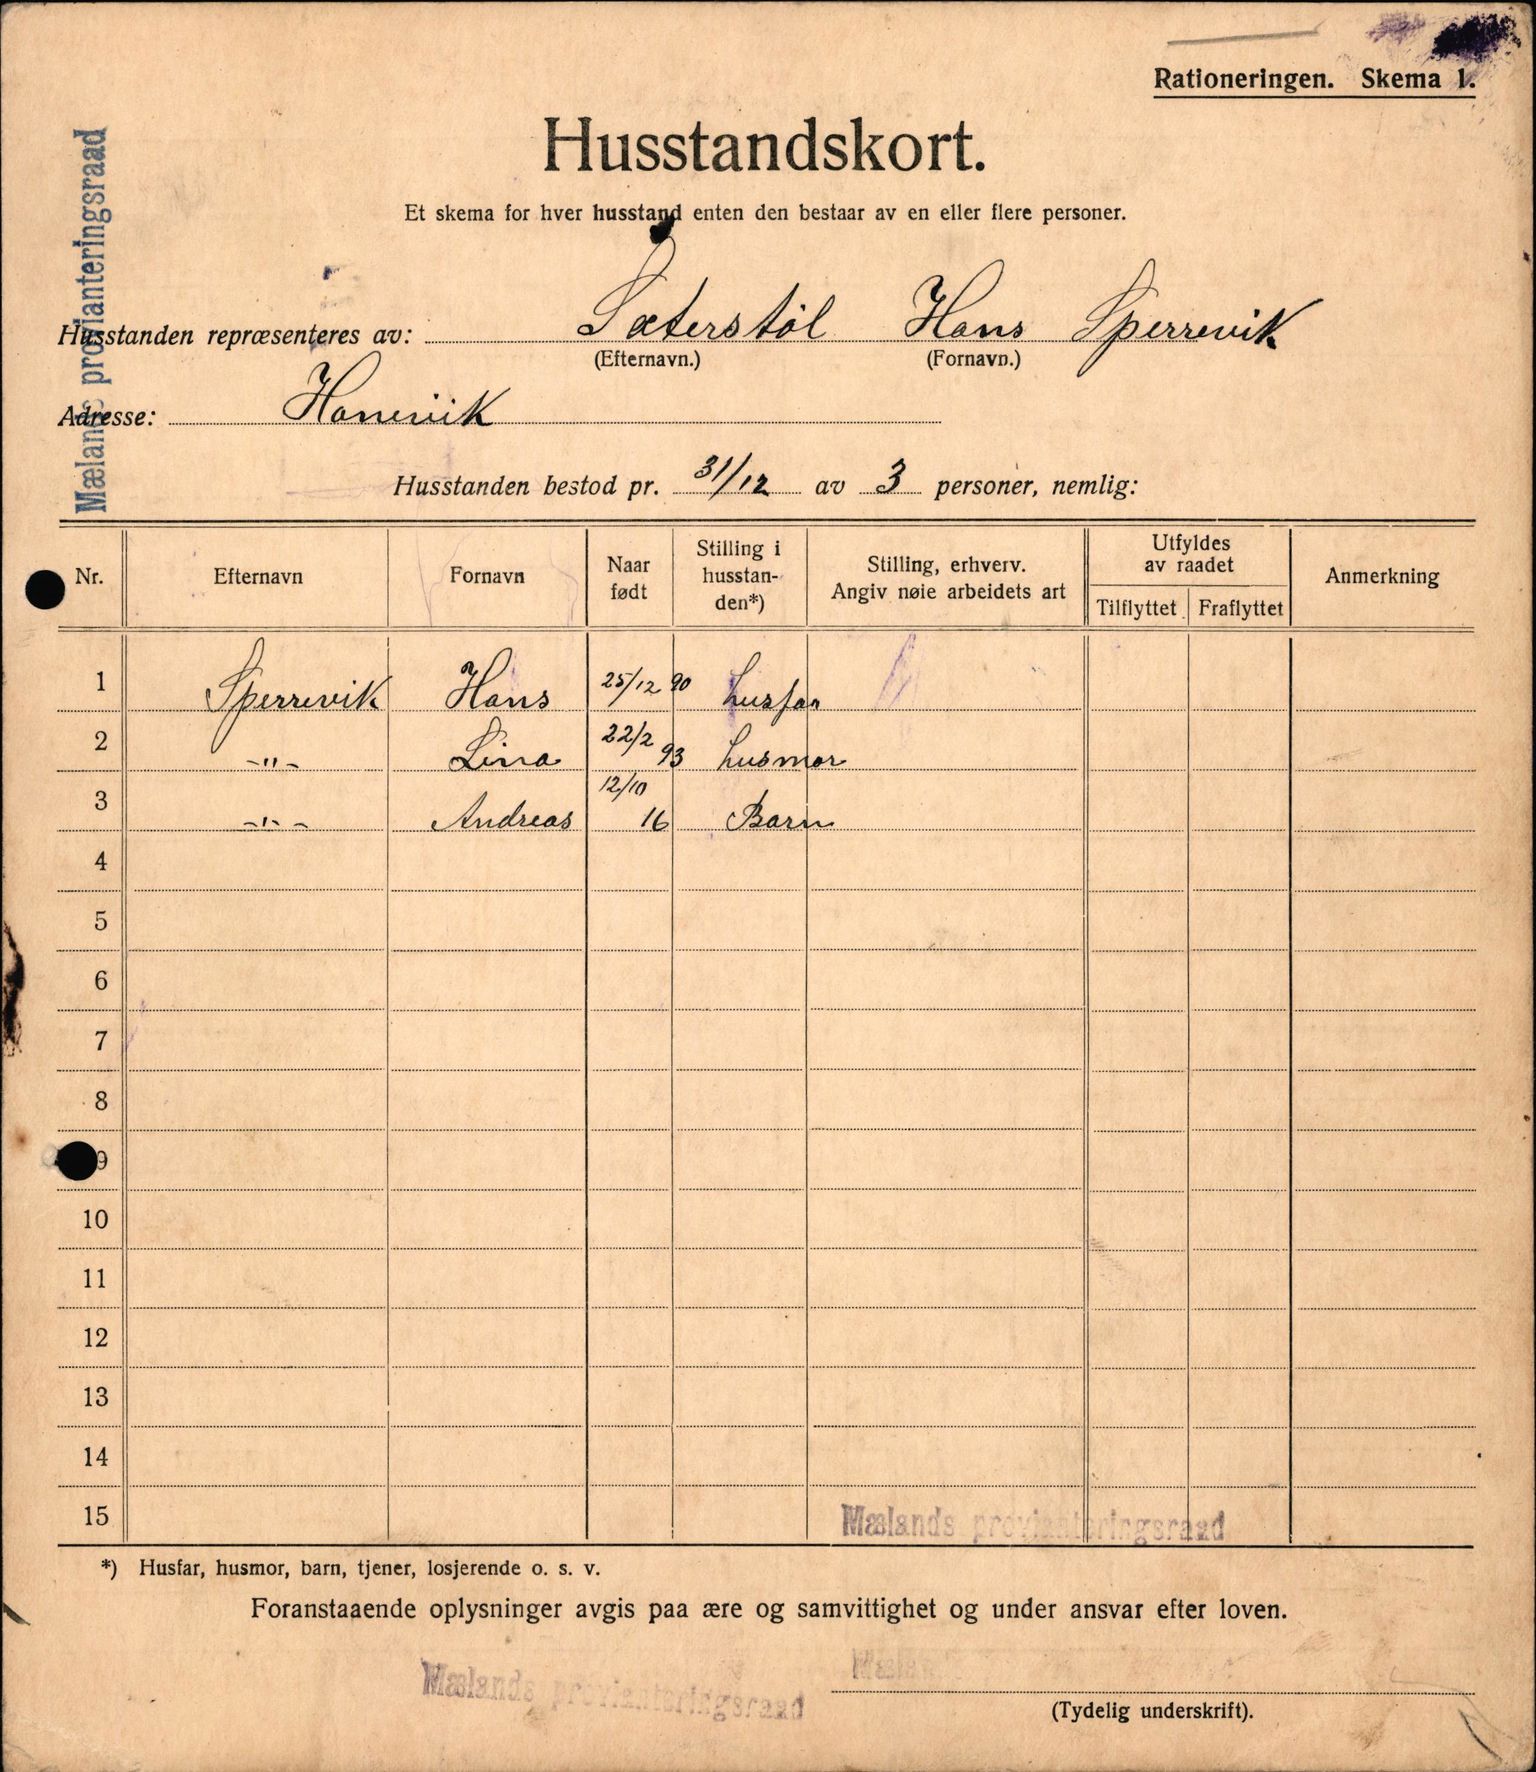 Rationeringen. Skema 1.
Husstandskort.
Et skema for hver husstand enten den bestaar av en eller flere personer.
Mælands provianteringsraad
Husstanden repræsenteres av: Sæterstøl Hans Sperrevik
(Efternavn.) (Fornavn.)
Adresse: Hanevik
Husstanden bestod pr. 31/12 av 3 personer, nemlig:
Nr. Efternavn Fornavn Naar født Stilling i husstan-den*) Stilling, erhverv. Angiv nøie arbeidets art Utfyldes av raadet Tilflyttet Fraflyttet Anmerkning
1 Sperrevik Hans 25/12 90 husfar
2 -"- Lina 22/2 93 husmor
3 -"- Andreas 12/10 16 Barn
4
5
6
7
8
9
10
11
12
13
14
15
Mælands provianteringsraad
*) Husfar, husmor, barn, tjener, losjerende o. s. v.
Foranstaaende oplysninger avgis paa ære og samvittighet og under ansvar efter loven.
Mælands provianteringsraad
(Tydelig underskrift).